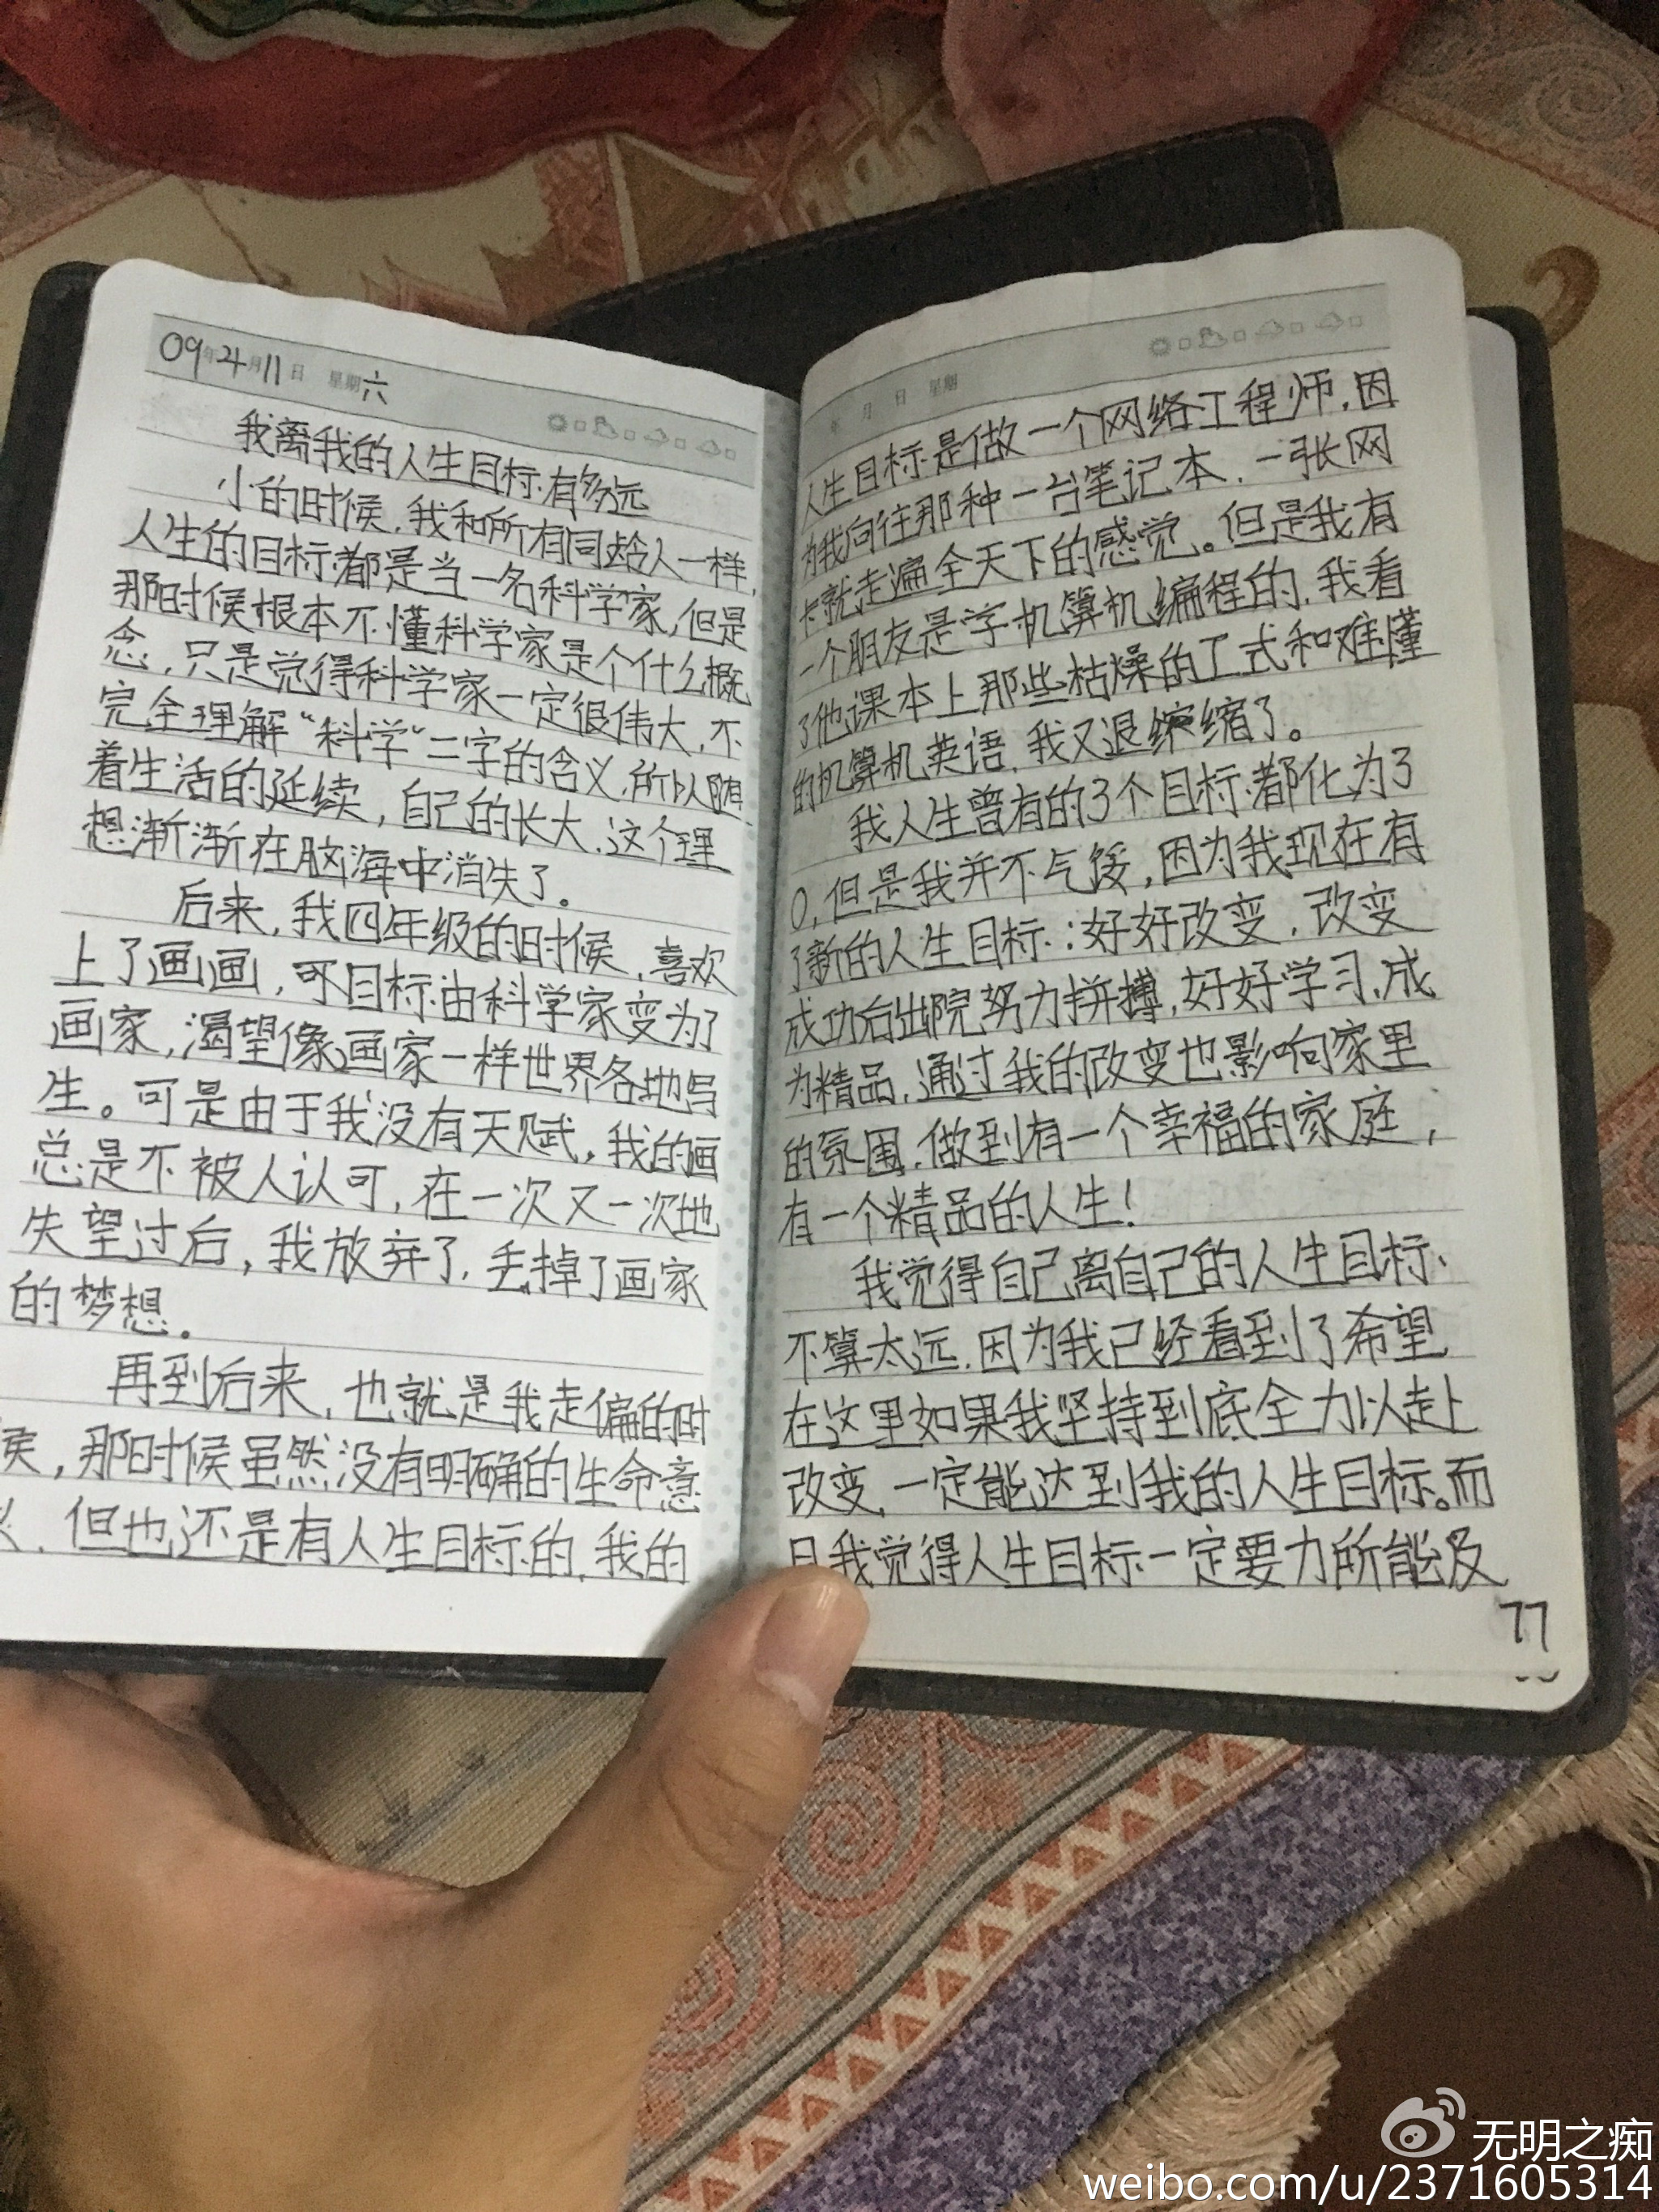 09年4月11日 星期六
我离我的人生目标有多远
小的时候,我和所有同龄人一样,
人生的目标都是当一名科学家,但是
那时候根本不懂科学家是个什么概
念,只是觉得科学家一定很伟大,不
完全理解“科学”二字的含义,所以随
着生活的延续,自己的长大,这个理
想渐渐在脑海中消失了。
后来,我四年级的时候,喜欢
上了画画,可目标由科学家变为了
画家,渴望像画家一样世界各地写
生。可是由于我没有天赋,我的画
总是不被人认可,在一次又一次地
失望过后,我放弃了,丢掉了画家
的梦想。
再到后来,也就是我走偏的时
候,那时候虽然没有明确的生命意
义,但也还是有人生目标的,我的
年 月 日 星期
人生目标是做一个网络工程师,因
为我向往那种一台笔记本,一张网
卡就走遍全天下的感觉。但是我有
一个朋友是学机算机编程的,我看
了他课本上那些枯燥的工式和难懂
的机算机英语,我又退缩了。
我人生曾有的3个目标都化为了
0,但是我并不气馁,因为我现在有
了新的人生目标:好好改变,改变
成功后出院努力拼搏,好好学习,成
为精品,通过我的改变也影响家里
的氛围,做到有一个幸福的家庭,
有一个精品的人生!
我觉得自己离自己的人生目标
不算太远,因为我已经看到了希望
在这里如果我坚持到底全力以赴
改变,一定能达到我的人生目标。而
且我觉得人生目标一定要力所能及
77
无明之痴
weibo.com/u/2371605314